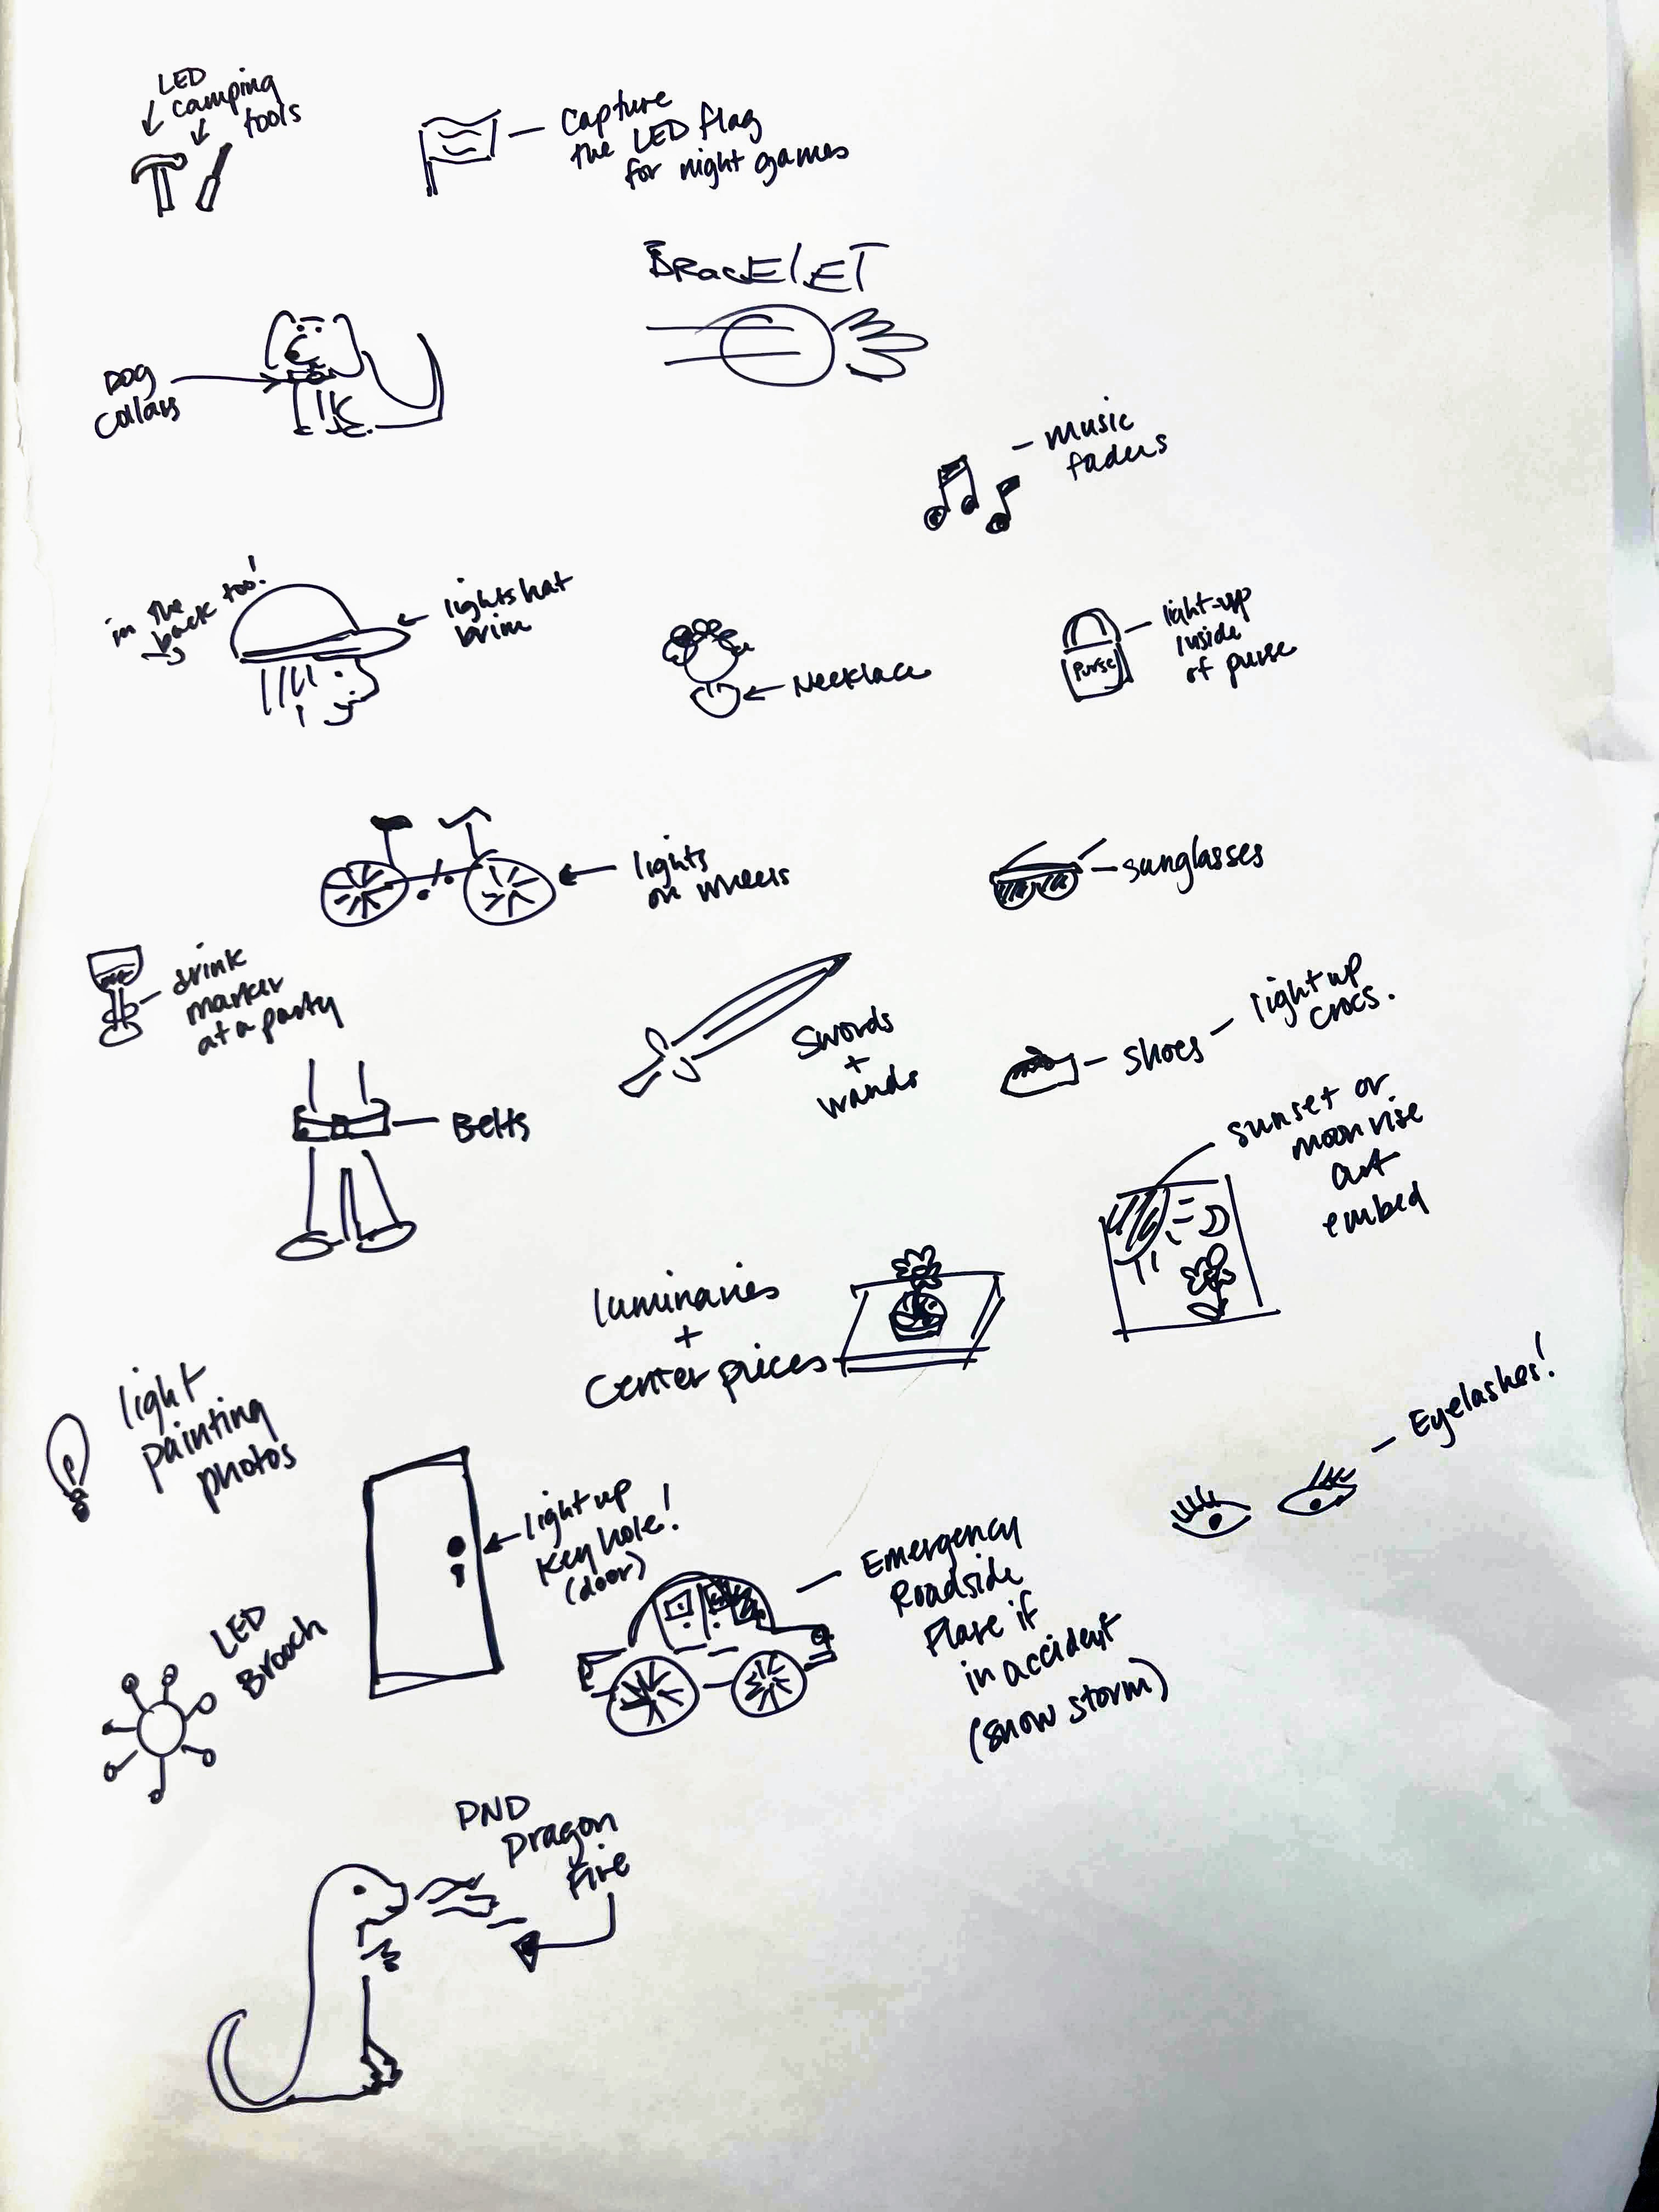 LED
camping
tools
Capture
the LED flag
for night games
BRacELET
DOG
collars
music
faders
in the
back too!
lights hat
brim
Necklace
Purse
light-up
inside
of purse
lights
on wheels
sunglasses
drink
marker
at a party
Swords
+
wands
shoes
light up
crocs.
Belts
sunset or
moon rise
art
embed
luminaries
+
Center pieces
light
painting
photos
light up
key hole!
(door)
Eyelashes!
Emergency
Roadside
Flare if
in accident
(snow storm)
LED
Brooch
DND
Dragon
Fire